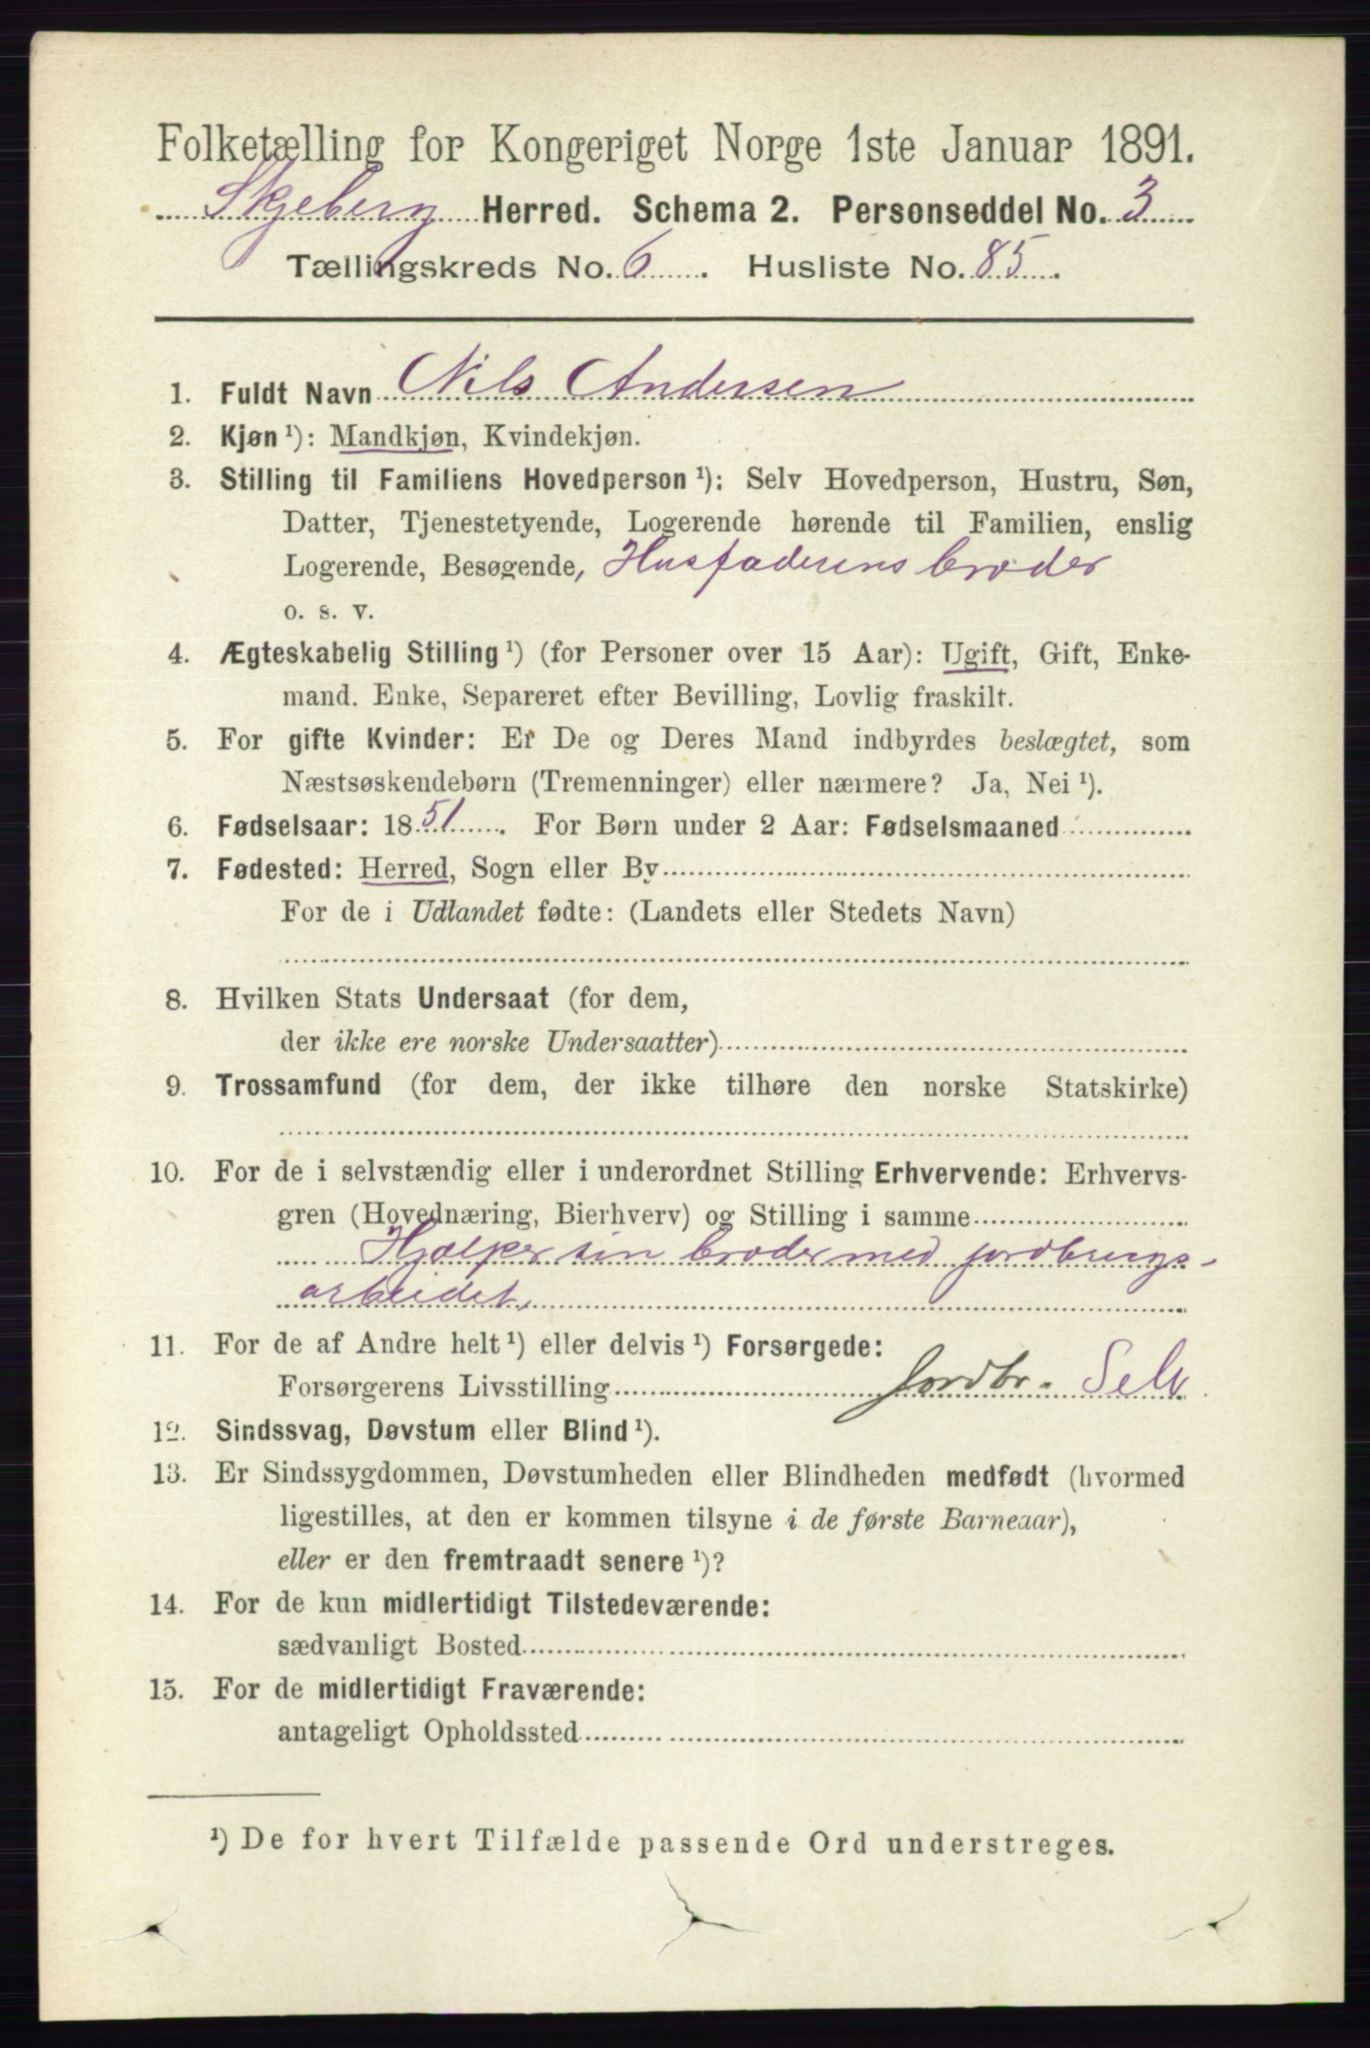 Folketælling for Kongeriget Norge 1ste Januar 1891.
Skjeberg Herred. Schema 2. Personseddel No. 3
Tællingskreds No. 6. Husliste No. 85.
1. Fuldt Navn Nils Andersen
2. Kjøn ¹): Mandkjøn, Kvindekjøn.
3. Stilling til Familiens Hovedperson ¹): Selv Hovedperson, Hustru, Søn,
Datter, Tjenestetyende, Logerende hørende til Familien, enslig
Logerende, Besøgende, Husfaderens broder
o. s. v.
4. Ægteskabelig Stilling ¹) (for Personer over 15 Aar): Ugift, Gift, Enke-
mand. Enke, Separeret efter Bevilling, Lovlig fraskilt.
5. For gifte Kvinder: Er De og Deres Mand indbyrdes beslægtet, som
Næstsøskendebørn (Tremenninger) eller nærmere? Ja, Nei ¹).
6. Fødselsaar: 1851. For Børn under 2 Aar: Fødselsmaaned
7. Fødested: Herred, Sogn eller By
For de i Udlandet fødte: (Landets eller Stedets Navn)
8. Hvilken Stats Undersaat (for dem,
der ikke ere norske Undersaatter)
9. Trossamfund (for dem, der ikke tilhøre den norske Statskirke)
10. For de i selvstændig eller i underordnet Stilling Erhvervende: Erhvervs-
gren (Hovednæring, Bierhverv) og Stilling i samme
Hjælper sin broder med jordbrugs-
arbeidet,
11. For de af Andre helt ¹) eller delvis ¹) Forsørgede:
Forsørgerens Livsstilling Jordbr. Selv
12. Sindssvag, Døvstum eller Blind ¹).
13. Er Sindssygdommen, Døvstumheden eller Blindheden medfødt (hvormed
ligestilles, at den er kommen tilsyne i de første Barneaar),
eller er den fremtraadt senere ¹)?
14. For de kun midlertidigt Tilstedeværende:
sædvanligt Bosted
15. For de midlertidigt Fraværende:
antageligt Opholdssted
¹) De for hvert Tilfælde passende Ord understreges.